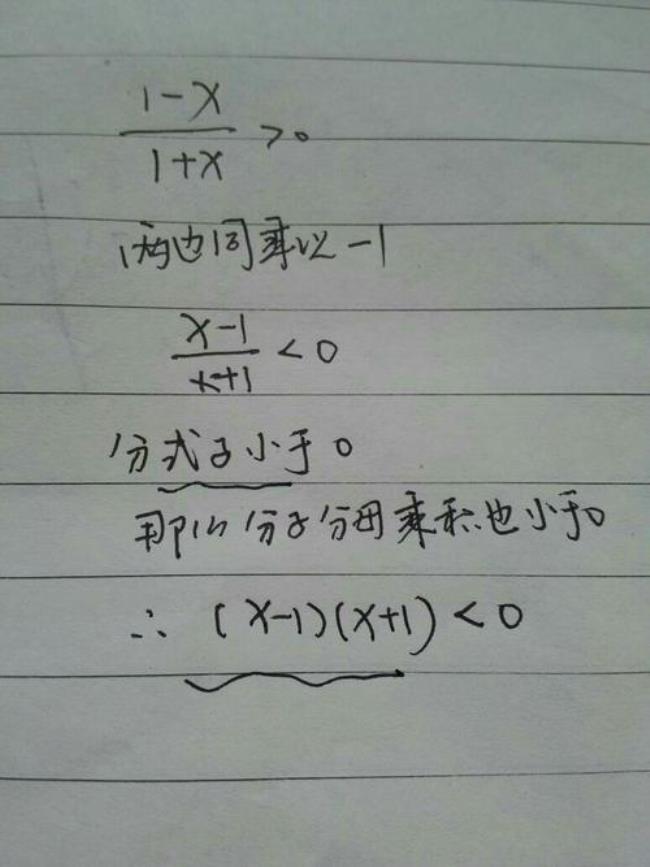 1-x
1+x >0
两边同乘以-1
x-1
x+1 <0
分式子小于0
那么分子分母乘积也小于0
∴ (x-1)(x+1)<0